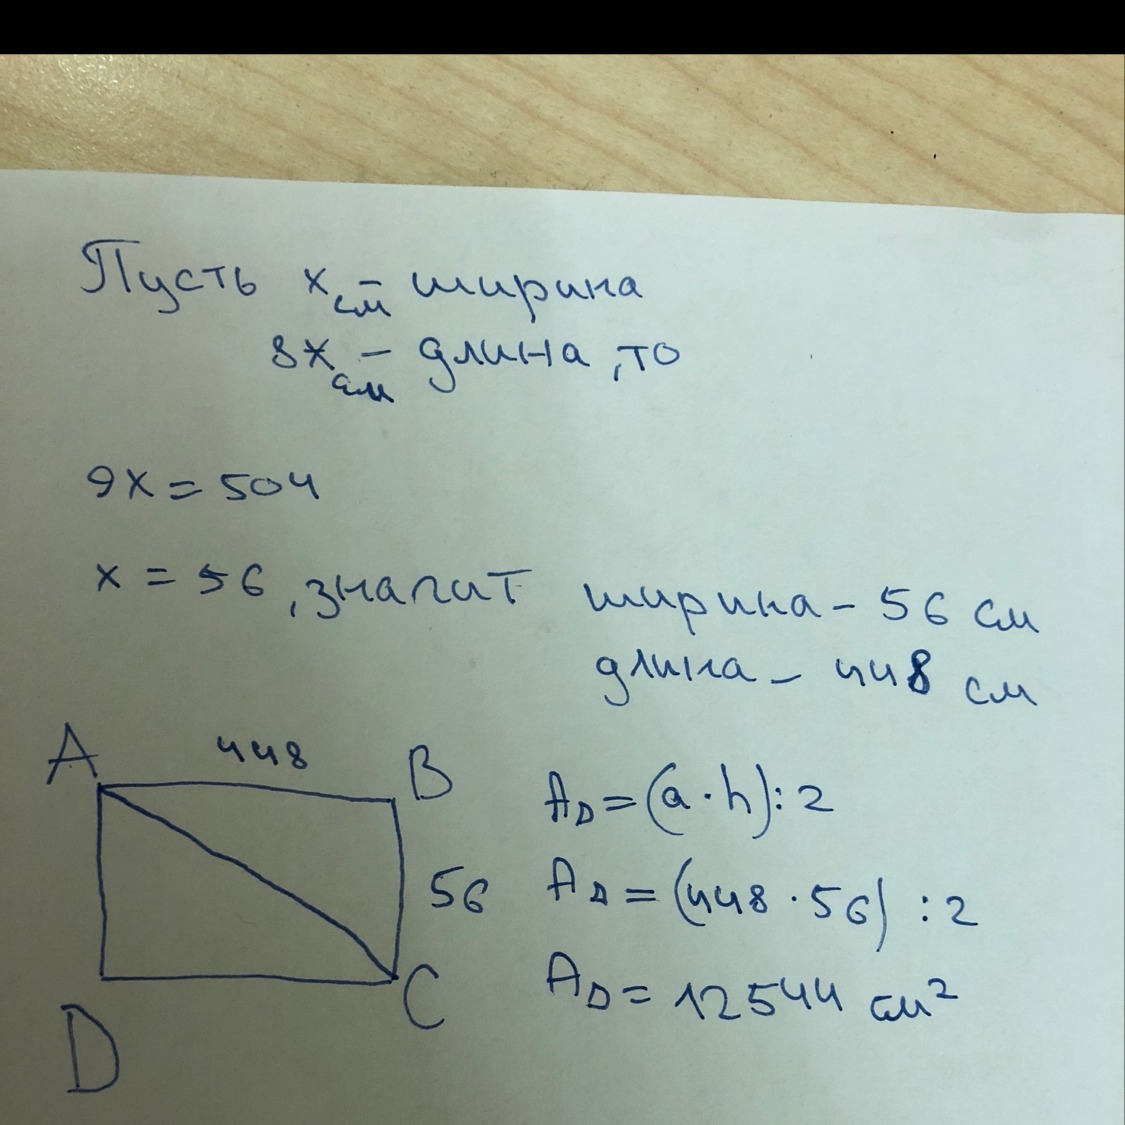 Пусть x см – ширина
8x см – длина, то
9x = 504
x = 56, значит ширина – 56 см
длина – 448 см
A 448 B
A_D = (a · h) : 2
56
A_D = (448 · 56) : 2
C
A_D = 12544 см²
D